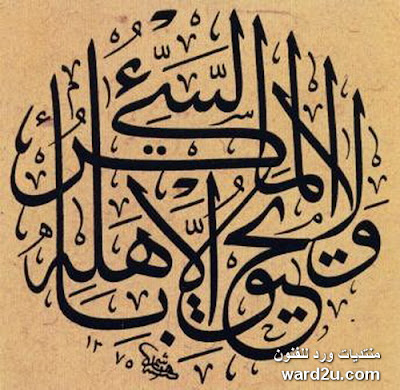 ولا يحيق المكر السَّيِّئُ إلَّا بأهله
١٣٧٥
منتديات ورد للفنون
ward2u.com